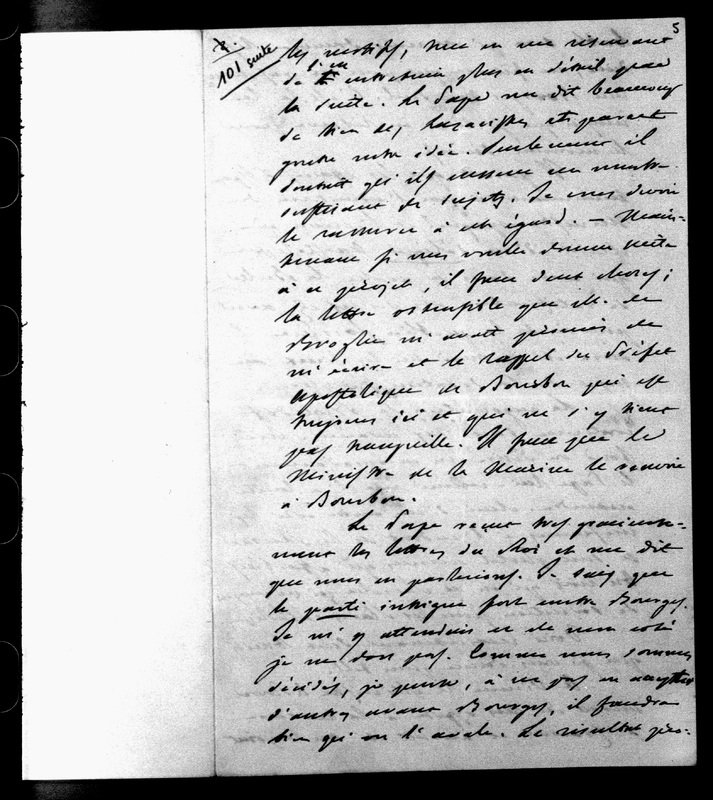 5
101 suite
les motifs, tout en me réservant
de l'en entretenir plus en détail par
la suite. Le Pape me dit beaucoup
de bien des Lazaristes et parut
goûter notre idée. Seulement il
doutait qu'ils eussent un nombre
suffisant de sujets. Je crus devoir
le rassurer à cet égard. — Main-
tenant si vous voulez donner suite
à ce projet, il faut deux choses;
la lettre ostensible que M. de
Broglie m'avait promis de
m'écrire et le rappel du Préfet
apostolique de Bourbon qui est
toujours ici et qui ne s'y tient
pas tranquille. Il faut que le
Ministre de la Marine le renvoie
à Bourbon.
Le Pape reçut très gracieuse-
ment les lettres du Roi et me dit
que nous en parlerions. Je sais que
le parti intrigue fort contre Bourges.
Je m'y attendais et de mon côté
je ne dors pas. Comme nous sommes
décidés, je pense, à ne pas en accepter
d'autres avant Bourges, il faudra
bien qu'on l'avale. Le résultat pro-